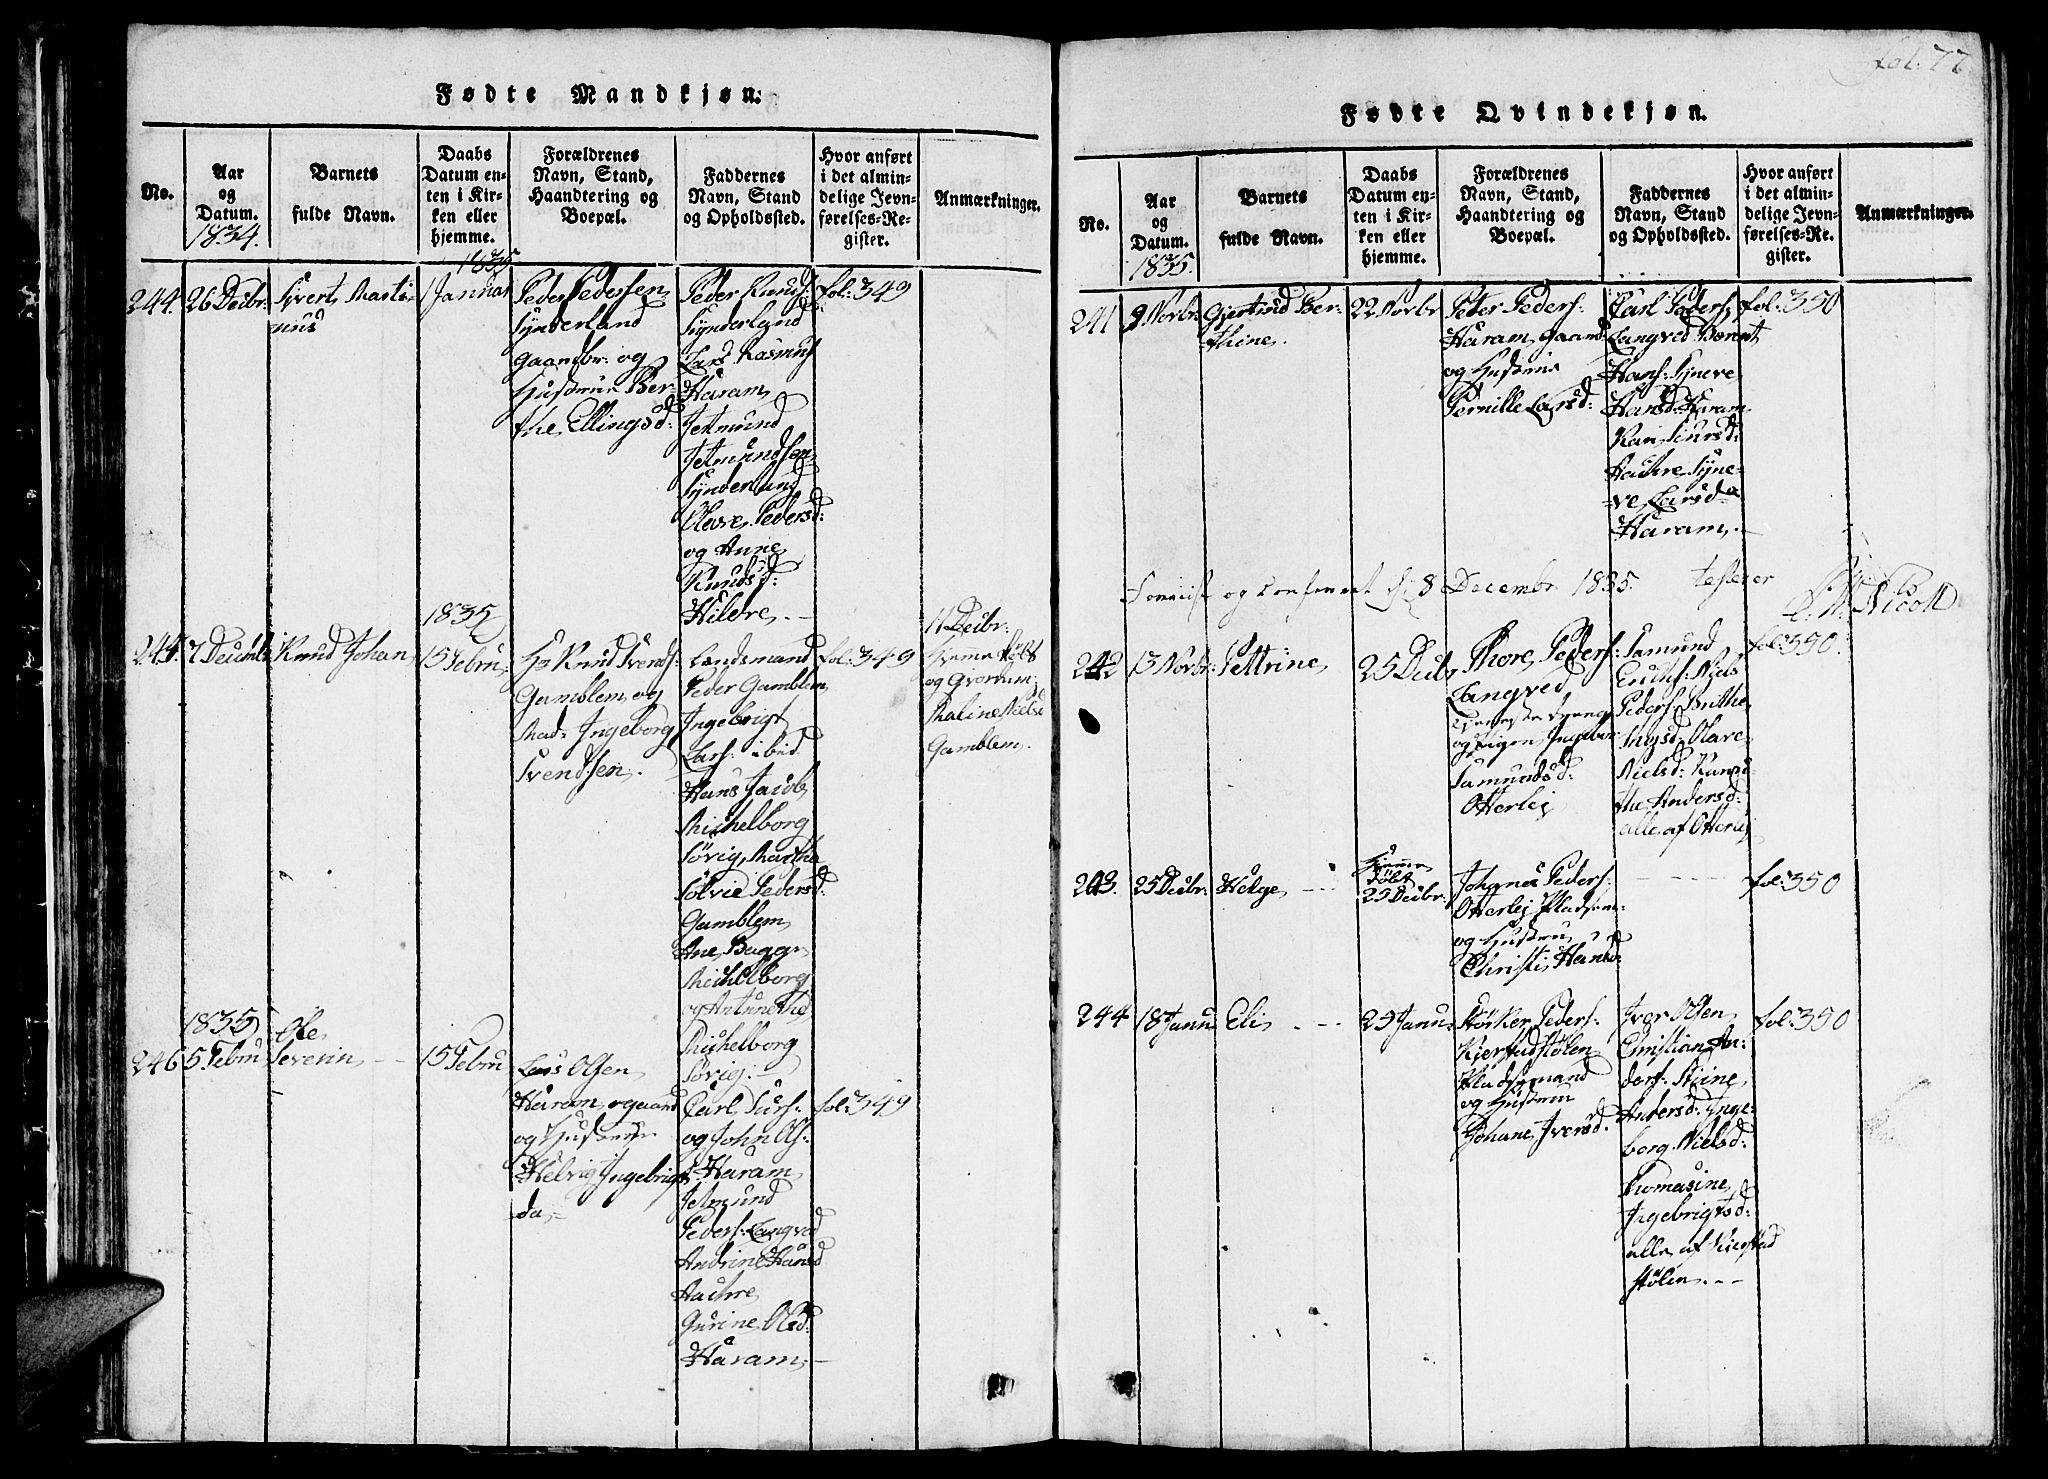 Fødte Mandkjøn.
No.
Aar
og
Datum.
1834.
Barnets
fulde Navn.
Daabs
Datum en-
ten i Kir-
ken eller
hjemme.
Forældrenes
Navn, Stand,
Haandtering og
Boepæl.
Faddernes
Navn, Stand
og Opholdssted.
Hvor anført
i det almin-
delige Jevn-
førelses-Re-
gister.
Anmærkninger.
244.
26 Decbr:
Syvert Marti-
nus
1835
1 Januar
Peder Pedersen
Synderland
Gaardbr: og
Hustrue Ber-
the Ellingsd:
Peder Knuds:
Synderland
Lars Rasmus
Haram
Jetmund
Jetmundsen
Synderland
Olave Pedersd:
og Anne
Knudsd:
Hildre. -
fol: 349
244.
7 Decembr
Knud Johan
1835
15 Febru:
Hr Knud Svends:
Gamblem og
Mad: Ingeborg
Svendsen.
Landsmand
Peder Gamblem
Ingebrigt
Lars: ibid
Hans Jacob
Michelborg
Sövig, Martha
Sölvie Pedersd:
Gamblem
Ane Bagge
Michelborg
og Antunette
Michelborg
Sövig. -
fol: 349
11 Decbr:
hjemme döbt
Maline Niels
Gamblem.
1835
246
5 Febru
Ole
Severin - -
15 Febru
Lars Olsen
Haram, ogaard
og Hustrue
Helvig Ingebrigts
da. -
Carl Siurs:
og John Ols:
Haram
Jetmund
Peders: Langved
Andrine Hansd
Aachre
Gurine Olsd:
Haram. -
fol: 349
fol: 77
Fødte Qvindekjøn.
No.
Aar
og
Datum.
1835.
Barnets
fulde Navn.
Daabs
Datum en-
ten i Kir-
ken eller
hjemme.
Forældrenes
Navn, Stand,
Haandtering og
Boepæl.
Faddernes
Navn, Stand
og Opholdssted.
Hvor anført
i det almin-
delige Jevn-
førelses-Re-
gister.
Anmærkninger.
241
9 Novbr:
Gjertrud Ber-
thine.
22 Novbr
Peter Peders:
Haram, Gaard
og Hustrue
Pernille Larsd:
Carl Peders,
Langved Berent
Hans: Syneve
Hansd: Haram
Kari Siursd:
Aachre Syne-
-ve Larsd
Haram. -
fol: 350
og Confereret d 8 December 1835. testerer
Nicoll
242
13 Novbr:
Pettrine
25 Decbr
Thore Peders:
Langved
Samundsd:
Otterlej
Samund
Erichs: Niels
Peders: Brithe
Olave
Nielsd:
the Andersd:
alle af Otterlej
fol: 350.
243.
25 Decbr:
Helge - - -
hjemme
döbt
25 Decbr:
Johanes Peders:
Otterlej Pladsm:
og Hustru
Christi Hansd.
fol: 350
244
18 Janu:
Eli - - -
29 Janu:
Störker Peders:
Kjerstadstölen
Pladsmand
og Hustrue
Johane Iversd.
Iver Olsen
Christian An-
ders: Stine
Andersd: Inge-
borg Nielsd:
Thomasine
Ingebrigtsd:
alle af Kierstad
stölen. - -
fol: 350